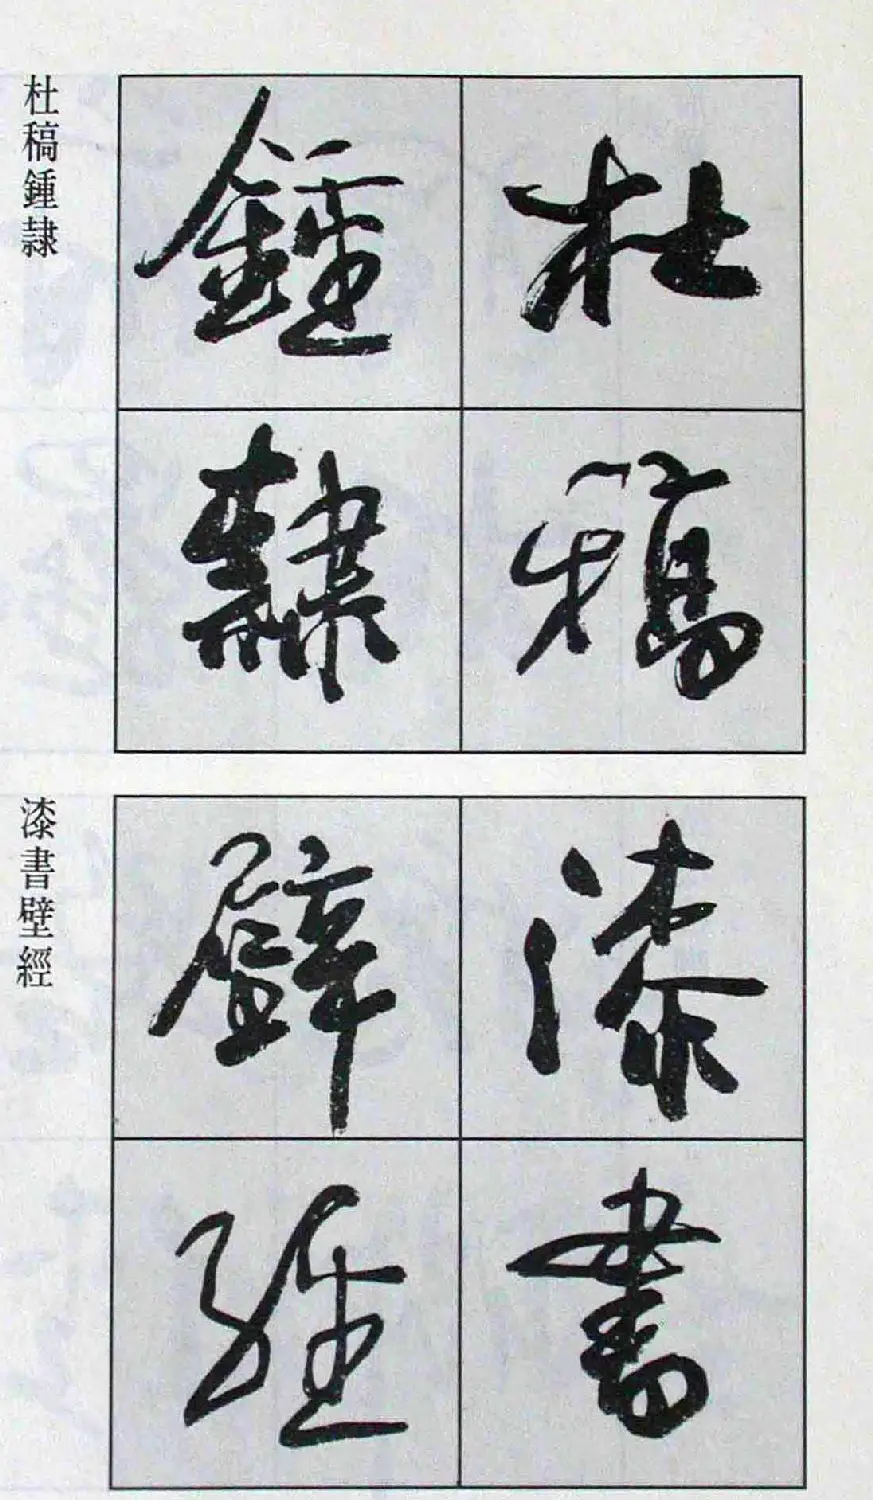 杜稿
鍾隸
杜稿鍾隷
漆書
壁經
漆書壁經